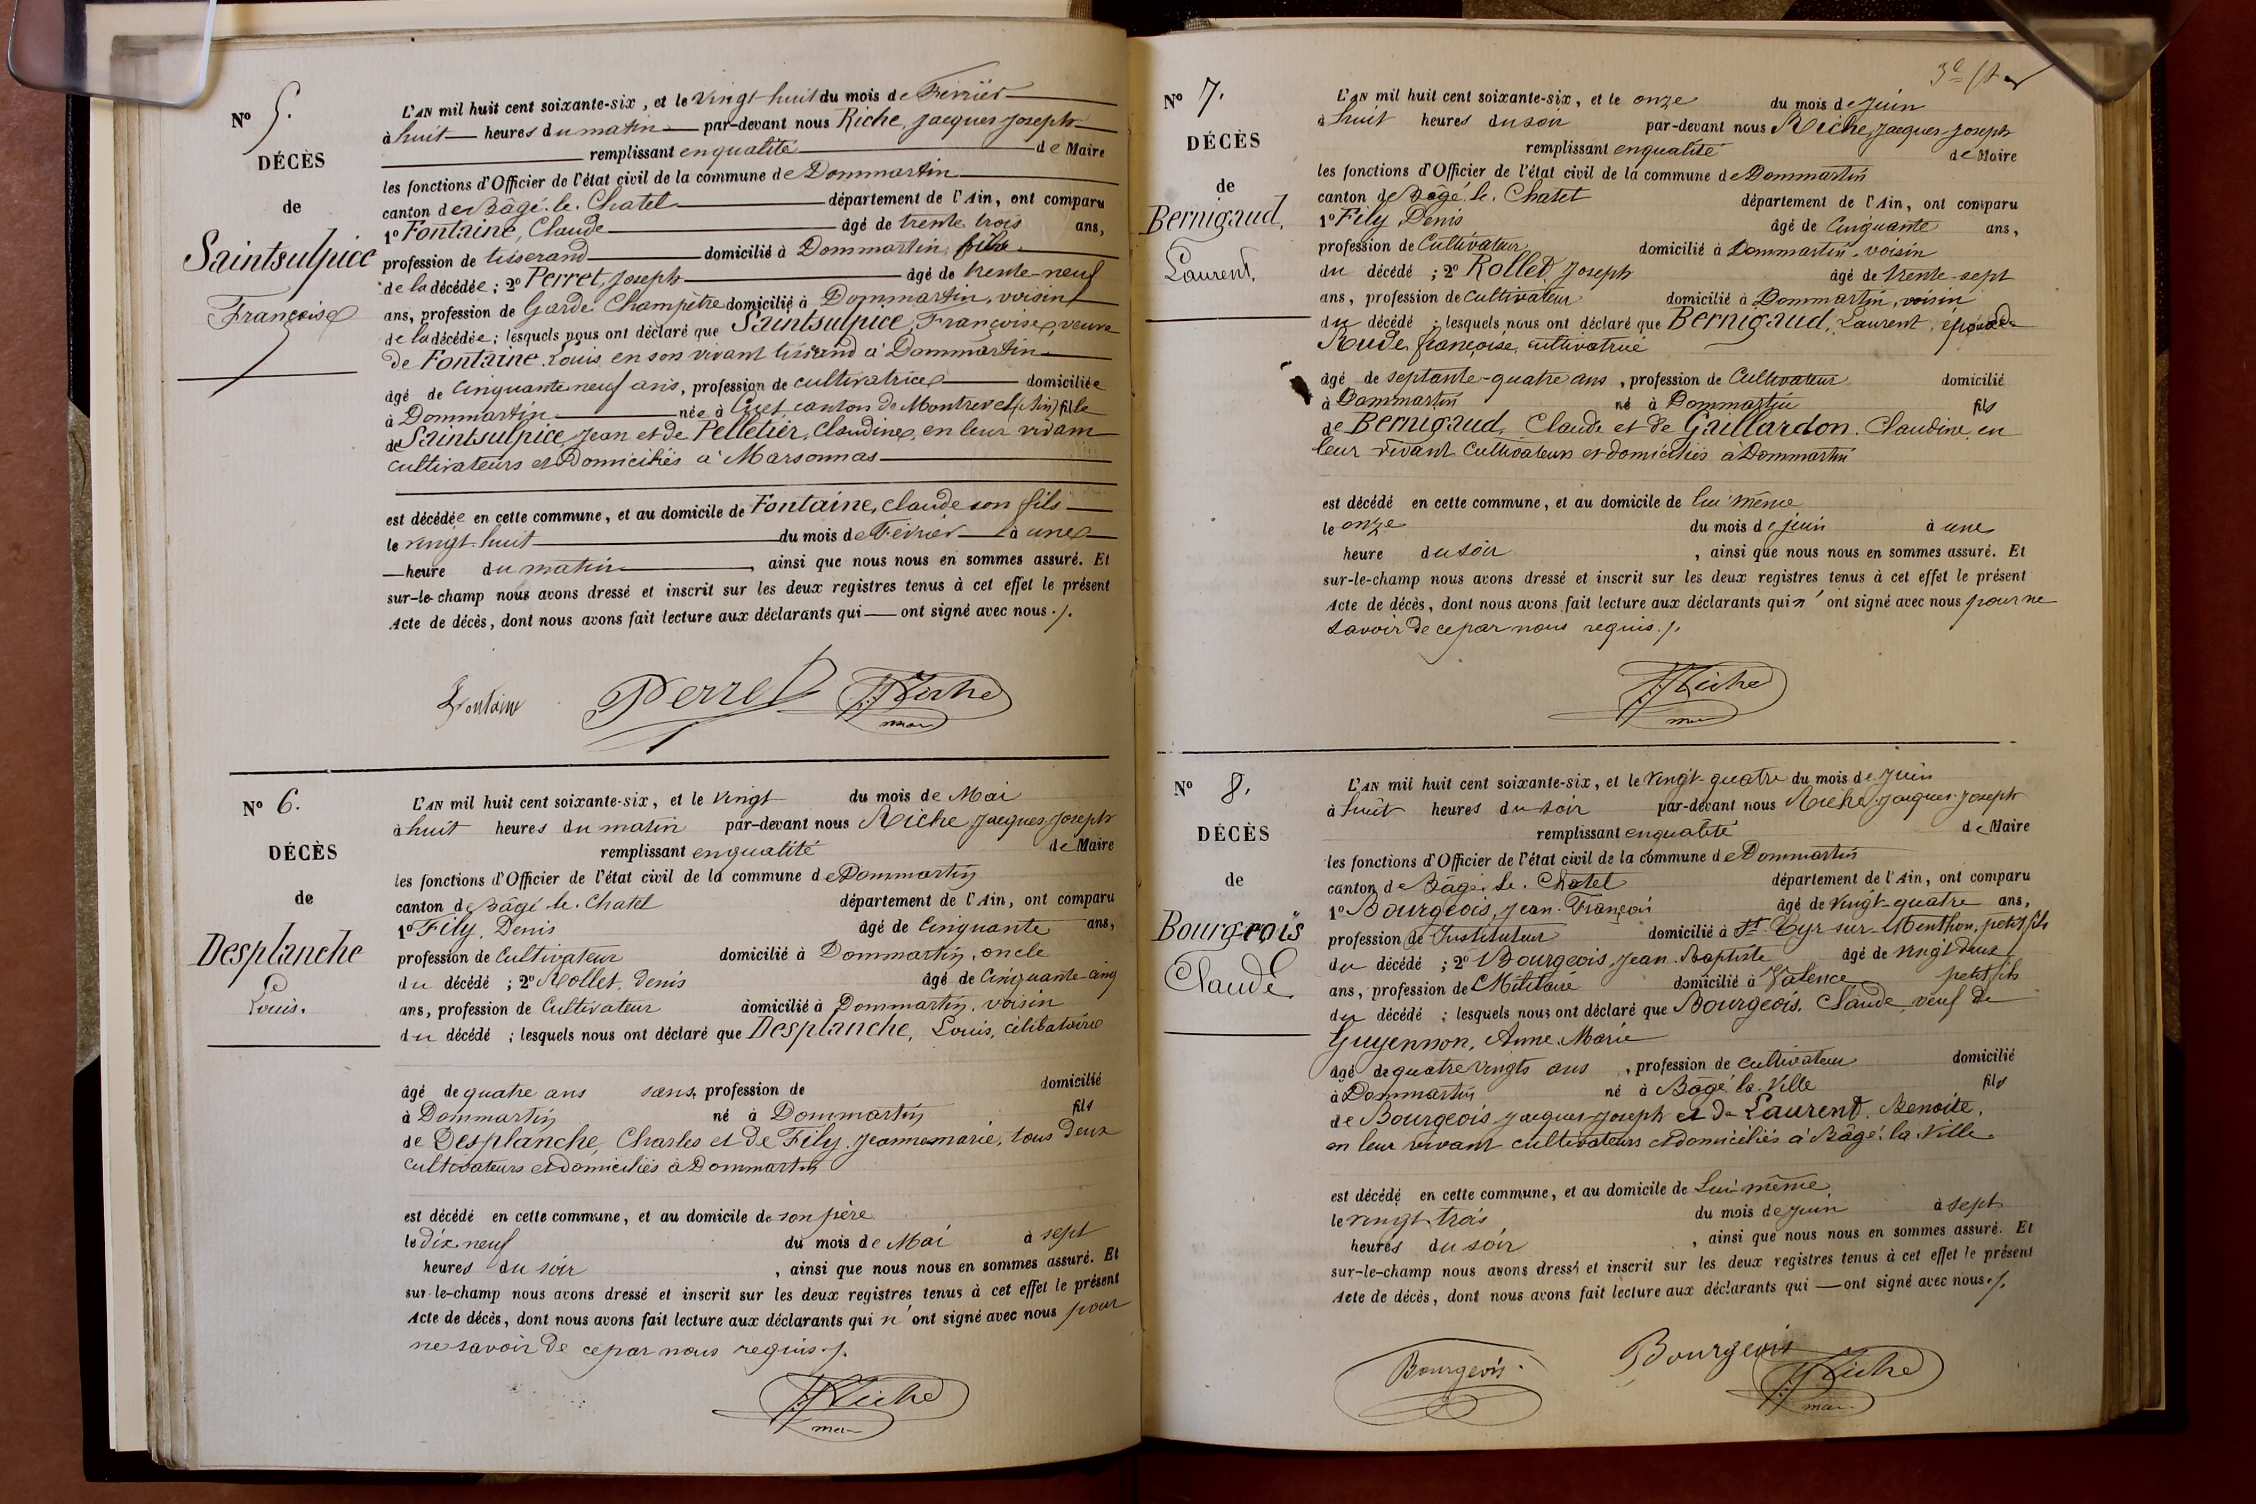 Nº 5.
DÉCÈS
de
Saintsulpice
Françoise
L'AN mil huit cent soixante-six, et le vingt-huit du mois de Février
à huit heures du matin par-devant nous Riche, Jacques Joseph
remplissant en qualité de Maire
les fonctions d'Officier de l'état civil de la commune de Dommartin
canton de Bâgé-le-Chatel département de l'Ain, ont comparu
1º Fontaine, Claude âgé de trente trois ans,
profession de tisserand domicilié à Dommartin, fils
de la décédée; 2º Perret, Joseph âgé de trente-neuf
ans, profession de Garde Champêtre domicilié à Dommartin, voisin
de la décédée; lesquels nous ont déclaré que Saintsulpice, Françoise, veuve
de Fontaine Louis en son vivant tisserand à Dommartin
âgé de Cinquante neuf ans, profession de cultivatrice domiciliée
à Dommartin née à Cuet, canton de Montrevel (Ain) fille
de Saintsulpice, Jean et de Pelletier, Claudine, en leur vivant
cultivateurs et Domiciliés à Marsonnas
est décédée en cette commune, et au domicile de Fontaine, Claude son fils
le vingt-huit du mois de Février à une
heure du matin, ainsi que nous nous en sommes assuré. Et
sur-le-champ nous avons dressé et inscrit sur les deux registres tenus à cet effet le présent
Acte de décès, dont nous avons fait lecture aux déclarants qui ont signé avec nous ./.
Fontaine Perret JJ Riche
maire
Nº 6.
DÉCÈS
de
Desplanche
Louis.
L'AN mil huit cent soixante-six, et le vingt du mois de Mai
à huit heures du matin par-devant nous Riche, Jacques Joseph
remplissant en qualité de Maire
les fonctions d'Officier de l'état civil de la commune de Dommartin
canton de Bâgé-le-Chatel département de l'Ain, ont comparu
1º Fily, Denis âgé de Cinquante ans,
profession de Cultivateur domicilié à Dommartin, oncle
du décédé; 2º Rollet, Denis âgé de Cinquante-cinq
ans, profession de Cultivateur domicilié à Dommartin, voisin
du décédé; lesquels nous ont déclaré que Desplanche, Louis, célibataire
âgé de quatre ans sans profession de domicilié
à Dommartin né à Dommartin fils
de Desplanche, Charles et de Fily, Jeanne marie, tous deux
cultivateurs et domiciliés à Dommartin
est décédé en cette commune, et au domicile de son père
le dix-neuf du mois de Mai à sept
heures du soir, ainsi que nous nous en sommes assuré. Et
sur-le-champ nous avons dressé et inscrit sur les deux registres tenus à cet effet le présent
Acte de décès, dont nous avons fait lecture aux déclarants qui n'ont signé avec nous pour
ne savoir de ce par nous requis ./.
JJ Riche
maire
Nº 7.
DÉCÈS
de
Bernigaud,
Laurent,
L'AN mil huit cent soixante-six, et le onze du mois de Juin
à huit heures du soir par-devant nous Riche, Jacques-Joseph
remplissant en qualité de Maire
les fonctions d'Officier de l'état civil de la commune de Dommartin
canton de Bâgé-le-Chatel département de l'Ain, ont comparu
1º Fily Denis âgé de Cinquante ans,
profession de Cultivateur domicilié à Dommartin, voisin
du décédé; 2º Rollet, Joseph âgé de trente-sept
ans, profession de Cultivateur domicilié à Dommartin, voisin
du décédé; lesquels nous ont déclaré que Bernigaud, Laurent, époux de
Rude, françoise, cultivatrice
âgé de septante-quatre ans, profession de Cultivateur domicilié
à Dommartin né à Dommartin fils
de Bernigaud, Claude et de Gaillardon, Claudine, en
leur vivant Cultivateurs et domiciliés à Dommartin
est décédé en cette commune, et au domicile de lui même
le onze du mois de juin à une
heure du soir, ainsi que nous nous en sommes assuré. Et
sur-le-champ nous avons dressé et inscrit sur les deux registres tenus à cet effet le présent
Acte de décès, dont nous avons fait lecture aux déclarants qui n'ont signé avec nous pour ne
savoir de ce par nous requis ./.
JJ Riche
maire
Nº 8.
DÉCÈS
de
Bourgeois
Claude
L'AN mil huit cent soixante-six, et le vingt-quatre du mois de Juin
à huit heures du soir par-devant nous Riche, Jacques-Joseph
remplissant en qualité de Maire
les fonctions d'Officier de l'état civil de la commune de Dommartin
canton de Bâgé-le-Chatel département de l'Ain, ont comparu
1º Bourgeois, Jean-François âgé de vingt-quatre ans,
profession de Instituteur domicilié à St Cyr-sur-Menthon, petit fils
du décédé; 2º Bourgeois, Jean-Baptiste âgé de vingt deux
ans, profession de Militaire domicilié à Valence petit fils
du décédé; lesquels nous ont déclaré que Bourgeois, Claude, veuf de
Guyennon, Anne Marie
âgé de quatre vingts ans, profession de cultivateur domicilié
à Dommartin né à Bâgé-la-Ville fils
de Bourgeois, Jacques-Joseph et de Laurent, Benoite,
en leur vivant cultivateurs et domiciliés à Bâgé-la-Ville
est décédé en cette commune, et au domicile de Lui-même
le vingt trois du mois de juin à sept
heures du soir, ainsi que nous nous en sommes assuré. Et
sur-le-champ nous avons dressé et inscrit sur les deux registres tenus à cet effet le présent
Acte de décès, dont nous avons fait lecture aux déclarants qui ont signé avec nous ./.
Bourgeois Bourgeois JJ Riche
maire